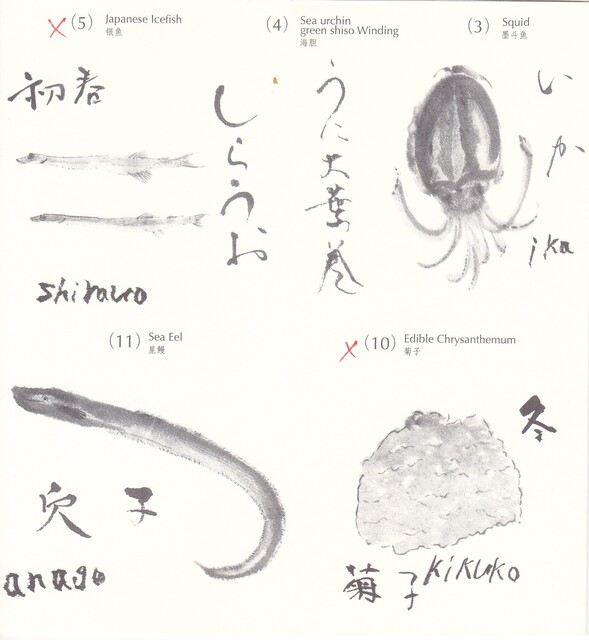 X (5) Japanese Icefish
银鱼
初春
しらうお
shirauo
(4) Sea urchin
green shiso Winding
海胆
うに大葉巻
(3) Squid
墨斗鱼
いか
ika
(11) Sea Eel
星鳗
穴子
anago
X (10) Edible Chrysanthemum
菊子
冬
菊子
kikuko